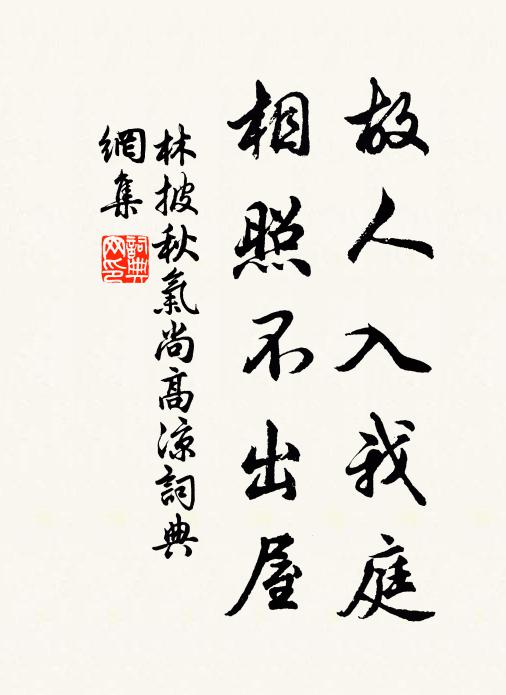 故人入我庭
相照不出屋
林披秋氣尚高涼詞典
網集
詞典
网印